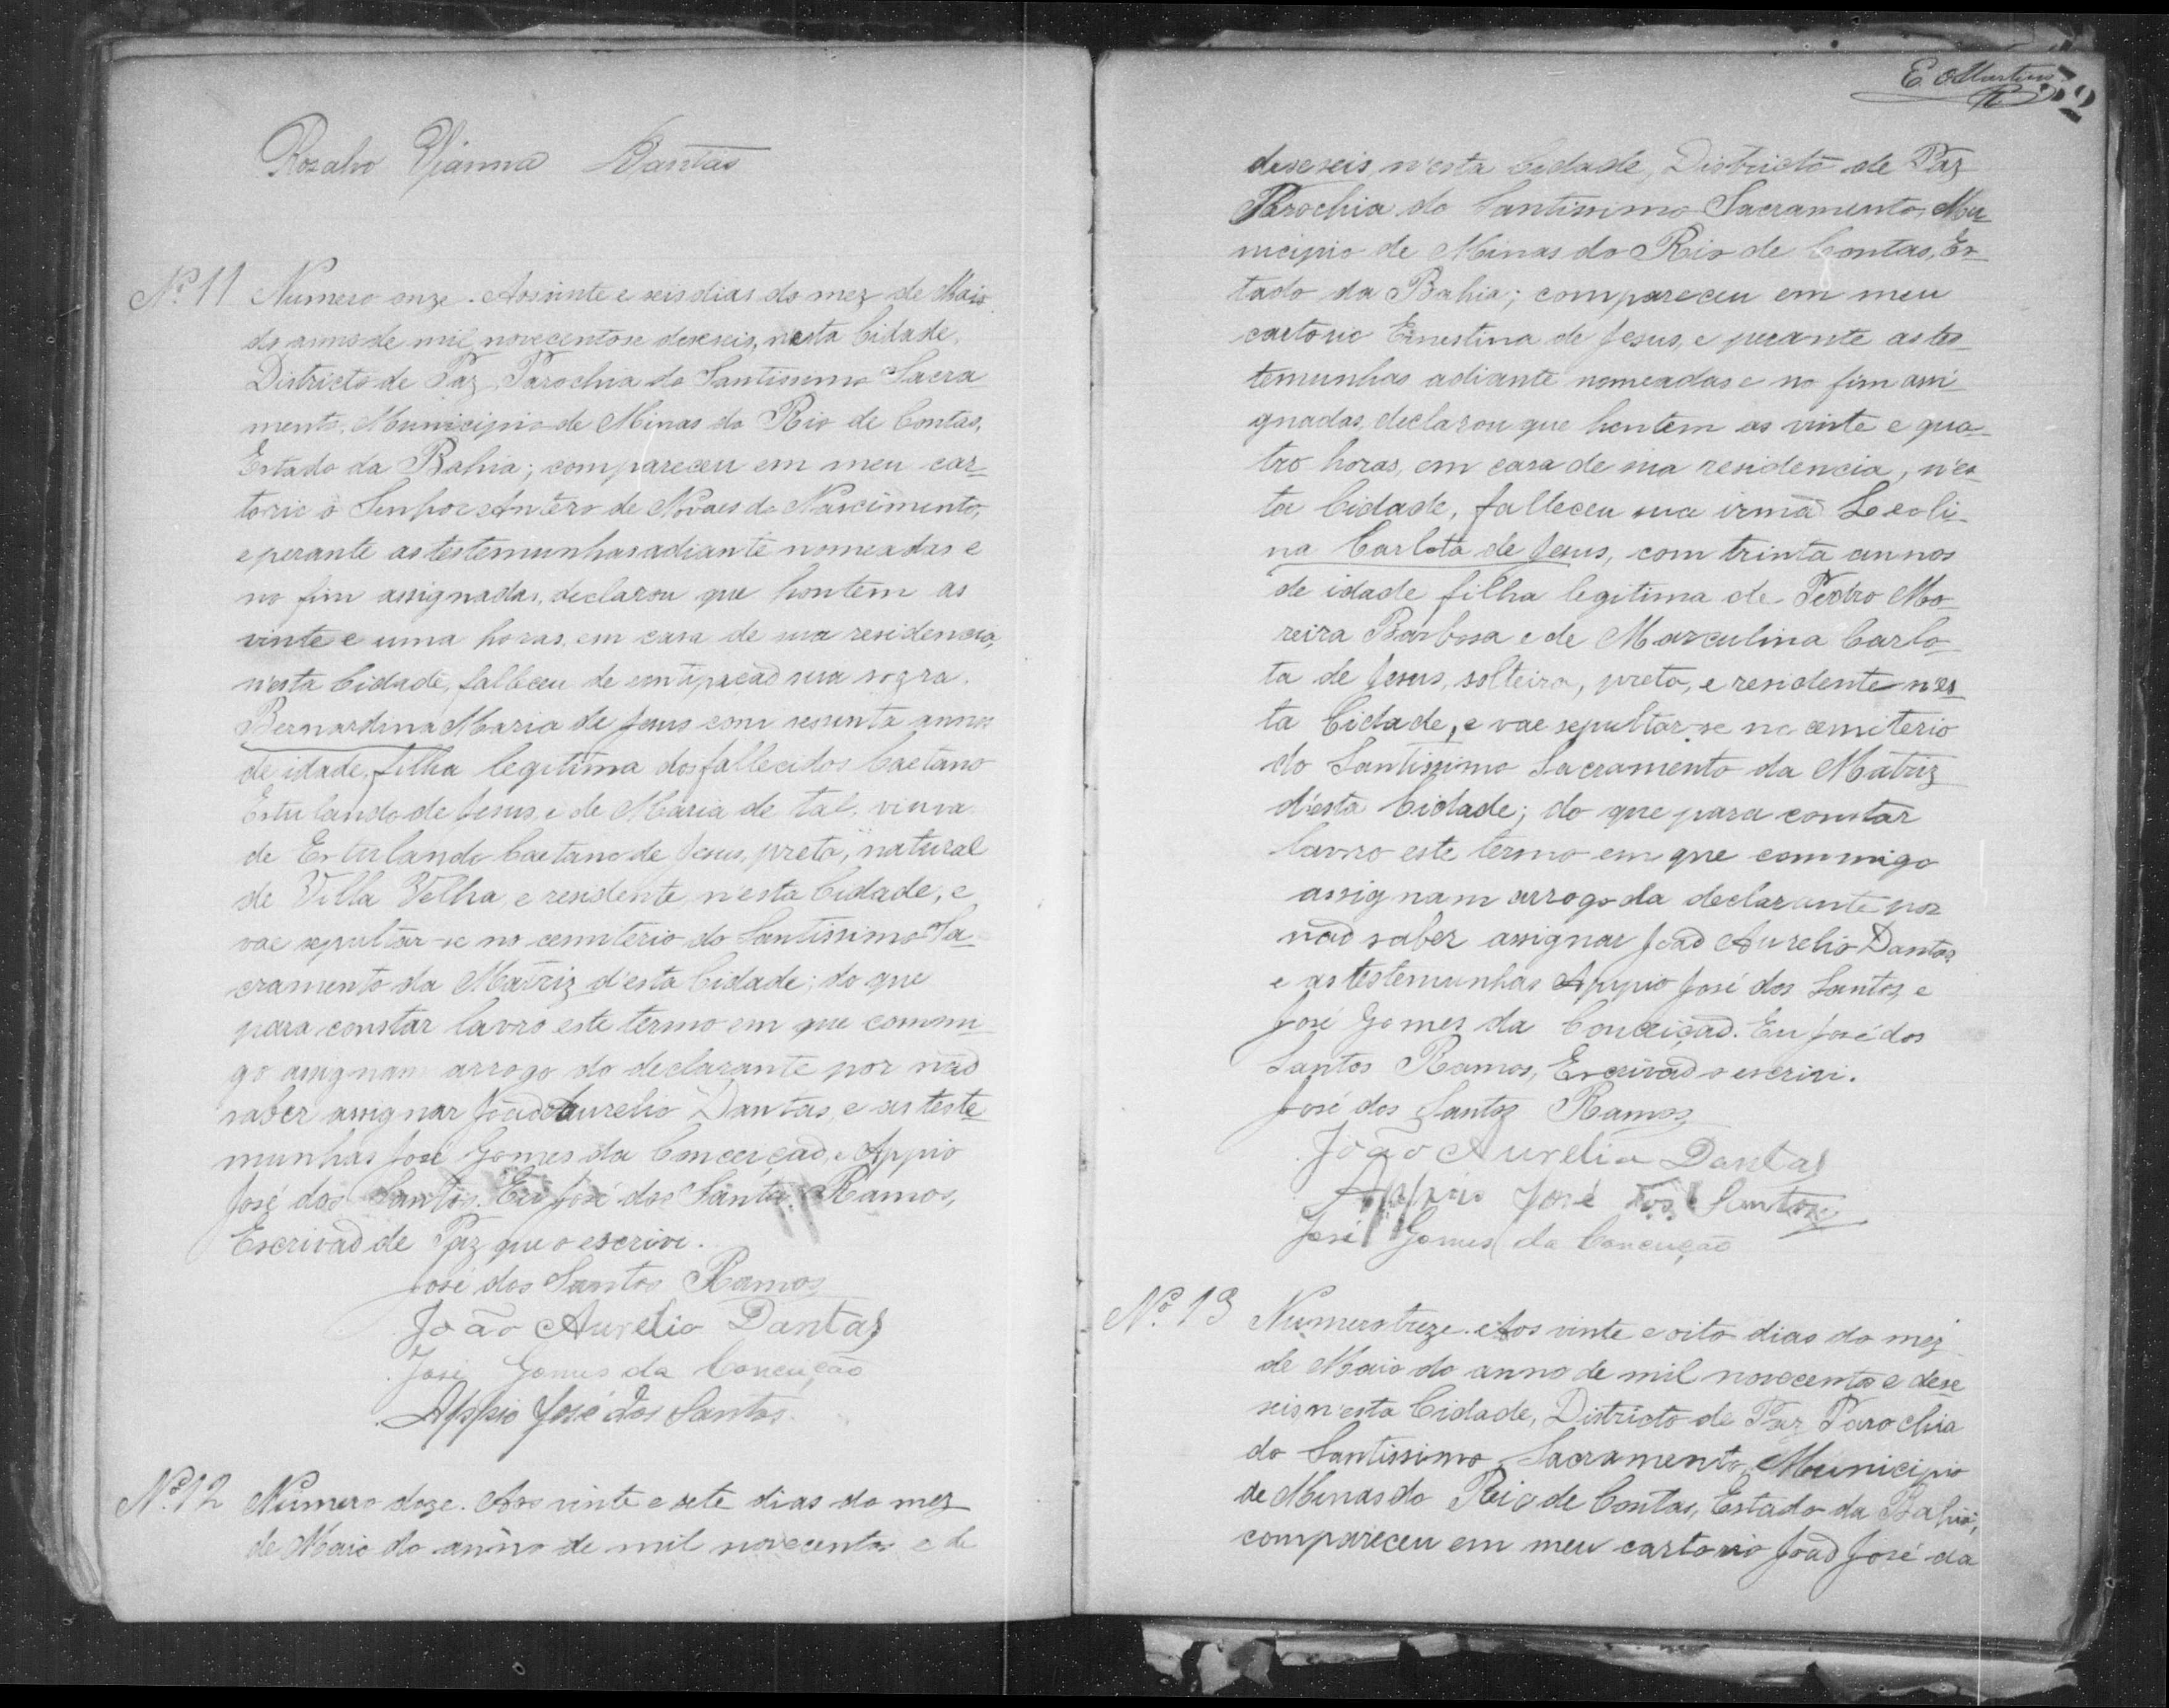 Rozalvo Vianna Dantas
Nº 11 Numero onze. Aos vinte e seis dias do mez de Maio
do anno de mil novecentos e deseseis, nesta Cidade,
Districto de Paz, Parochia do Santissimo Sacra
mento, Municipio de Minas do Rio de Contas,
Estado da Bahia; compareceu em meu car-
torio o Senhor Antero de Novaes do Nascimento,
e perante as testemunhas adiante nomeadas e
no fim assignadas, declarou que hontem as
vinte e uma horas, em casa de sua residencia,
n'esta Cidade, falleceu de constipação sua sogra.
Bernardina Maria de Jesus com sessenta annos
de idade, filha legitima dos fallecidos Caetano
Estulando de Jesus, e de Maria de tal, viuva
de Estulando Caetano de Jesus, preta, natural
de Villa Velha, e residente n'esta Cidade, e
vae sepultar-se no cemiterio do Santissimo Sa-
cramento da Matriz d'esta Cidade; do que
para constar lavro este termo em que commi-
go assignam arrogo do declarante por não
saber assignar João Aurelio Dantas, e as teste-
munhas José Gomes da Conceição, e Appio
José dos Santos. Eu José dos Santos Ramos,
Escrivão de Paz que o escrivi.
José dos Santos Ramos
João Aurelio Dantas
José Gomes da Conceição
Appio José dos Santos
Nº 12 Numero doze. Aos vinte e sete dias do mez
de Maio do anno de mil novecentos e de
E. Martins
52
deseseis, n'esta Cidade, Districto de Paz
Parochia do Santissimo Sacramento, Mu-
nicipio de Minas do Rio de Contas, Es-
tado da Bahia; compareceu em meu
cartorio Ernestina de Jesus, e perante as tes-
temunhas adiante nomeadas e no fim assi-
gnadas, declarou que hontem as vinte e qua-
tro horas, em casa de sua residencia, n'es-
ta Cidade, falleceu sua irmã Leoli-
na Carlota de Jesus, com trinta annos
de idade filha legitima de Pedro Mo-
reira Barbosa e de Marculina Carlo-
ta de Jesus, solteira, preta, e residente n'es-
ta Cidade, e vae sepultar-se no cemiterio
do Santissimo Sacramento da Matriz
d'esta Cidade; do que para constar
lavro este termo em que commigo
assignam arrogo da declarante por
não saber assignar João Aurelio Dantas
e as testemunhas Appio José dos Santos e
José Gomes da Conceição. Eu José dos
Santos Ramos, Escrivão o escrivi.
José dos Santos Ramos
João Aurelio Dantas
Appio José dos Santos
José Gomes da Conceição
Nº 13 Numero treze. Aos vinte e oito dias do mez
de Maio do anno de mil novecentos e dese
seis, n'esta Cidade, Districto de Paz Parochia
do Santissimo Sacramento, Municipio
de Minas do Rio de Contas, Estado da Bahia,
compareceu em meu cartorio João José da